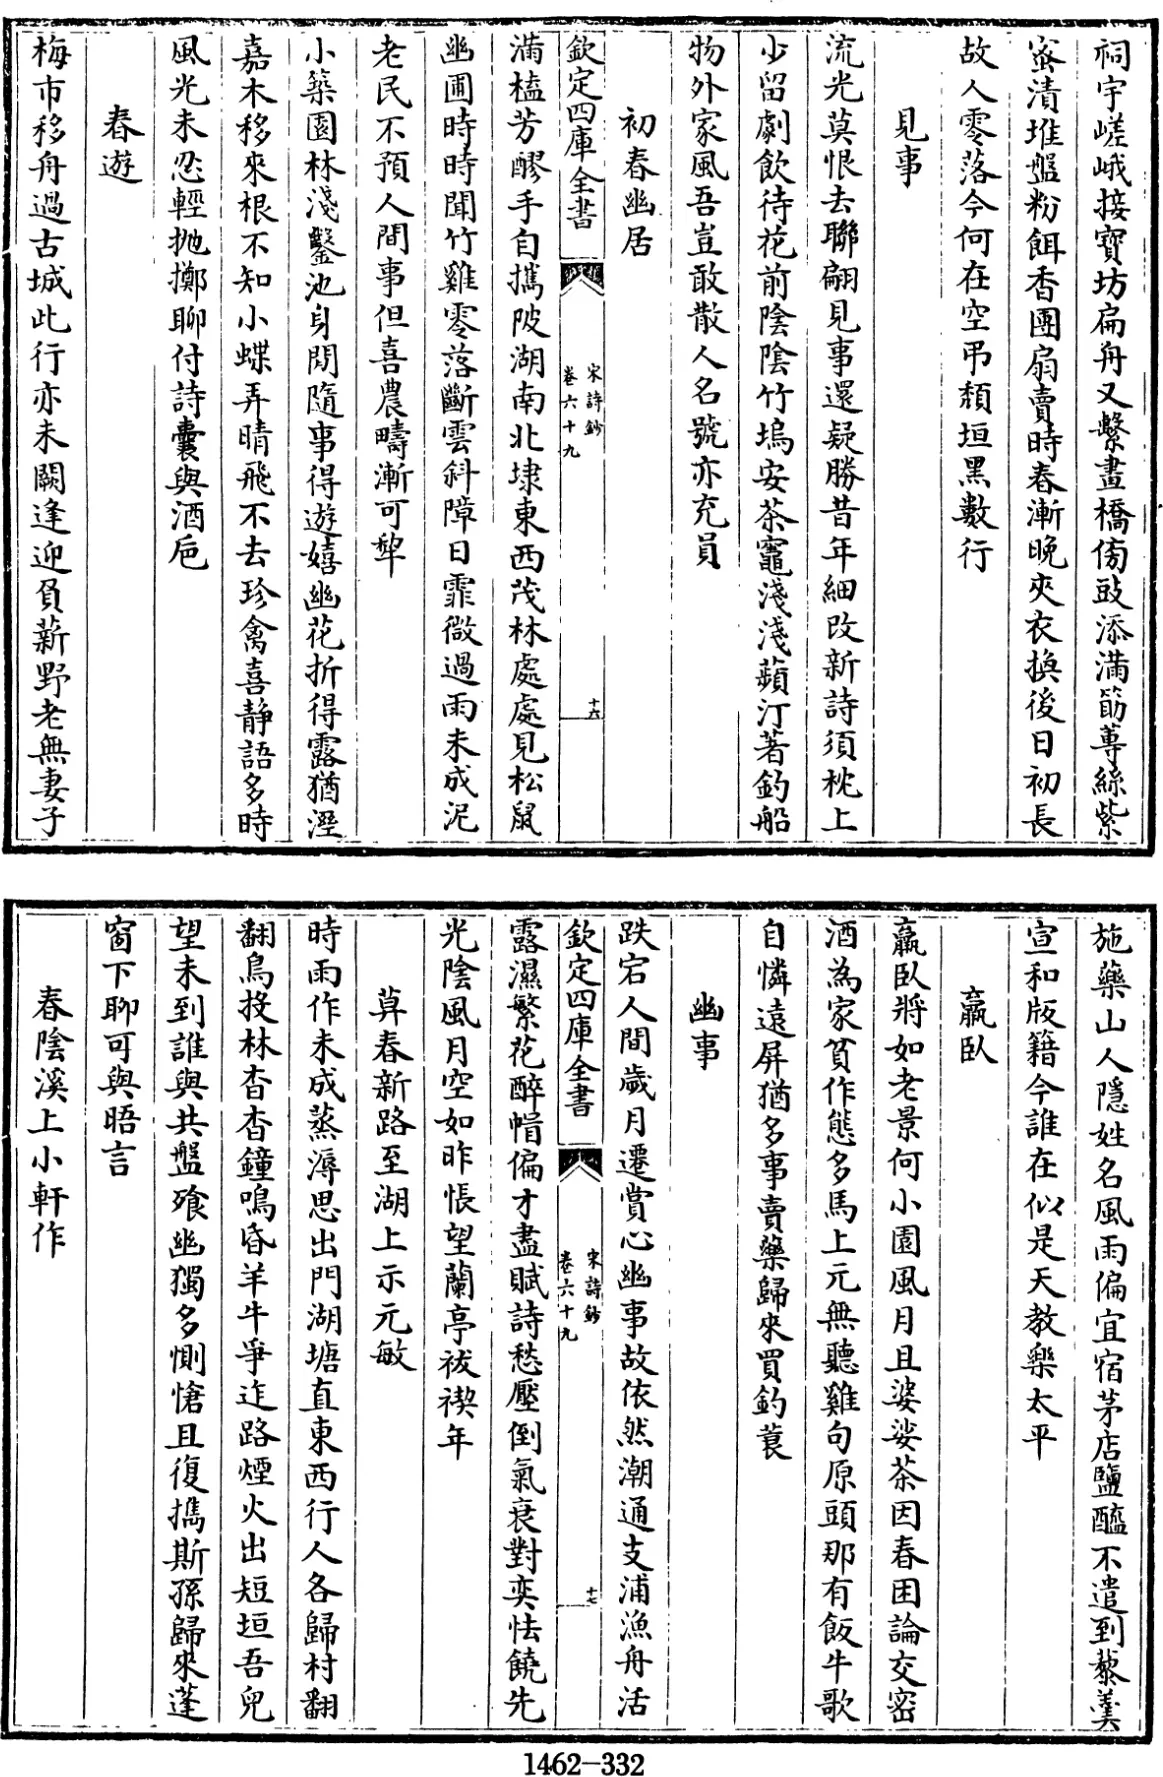 祠宇嵯峨接寶坊扁舟又繫畫橋傍豉添滿筯蓴絲紫
蜜漬堆盤粉餌香團扇賣時春漸晚夾衣換後日初長
故人零落今何在空弔頹垣黑數行
見事
流光莫恨去聯翩見事還疑勝昔年細改新詩須枕上
少留劇飲待花前陰陰竹塢安茶竈淺淺蘋汀著釣船
物外家風吾豈敢散人名號亦充員
初春幽居
欽定四庫全書
宋詩鈔
卷六十九
十六
滿榼芳醪手自攜陂湖南北埭東西茂林處處見松鼠
幽圃時時聞竹雞零落斷雲斜障日霏微過雨未成泥
老民不預人間事但喜農疇漸可犂
小築園林淺鑿池身閒隨事得遊嬉幽花折得露猶溼
嘉木移來根不知小蝶弄晴飛不去珍禽喜靜語多時
風光未忍輕抛擲聊付詩囊與酒巵
春遊
梅市移舟過古城此行亦未闕逢迎負薪野老無妻子
施藥山人隱姓名風雨偏宜宿茅店鹽醯不遣到藜羹
宣和版籍今誰在似是天教樂太平
羸臥
羸臥將如老景何小園風月且婆娑茶因春困論交密
酒為家貧作態多馬上元無聽雞句原頭那有飯牛歌
自憐遠屏猶多事賣藥歸來買釣蓑
幽事
跌宕人間歲月遷賞心幽事故依然潮通支浦漁舟活
欽定四庫全書
宋詩鈔
卷六十九
十七
露濕繁花醉帽偏才盡賦詩愁壓倒氣衰對奕怯饒先
光陰風月空如昨悵望蘭亭祓禊年
莫春新路至湖上示元敏
時雨作未成蒸溽思出門湖塘直東西行人各歸村翻
翻鳥投林杳杳鐘鳴昏羊牛爭迮路煙火出短垣吾兒
望未到誰與共盤飱幽獨多惻愴且復攜斯孫歸來蓬
窗下聊可與晤言
春陰溪上小軒作
1462-332